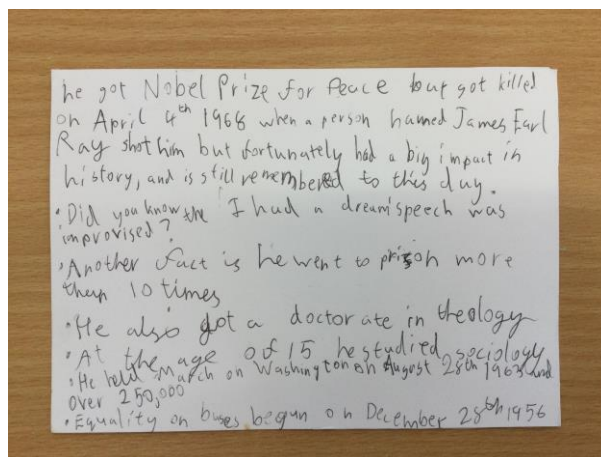 he got Nobel Prize for Peace but got killed
on April 4th 1968 when a person named James Earl
Ray shot him but fortunately had a big impact in
history, and is still remembered to this day.
• Did you know the I had a dream speech was
improvised?
• Another fact is he went to prison more
than 10 times
• He also got a doctorate in theology
• At the age of 15 he studied sociology
• He held march on Washington on August 28th 1963 and
over 250,000
• Equality on buses begun on December 28th 1956